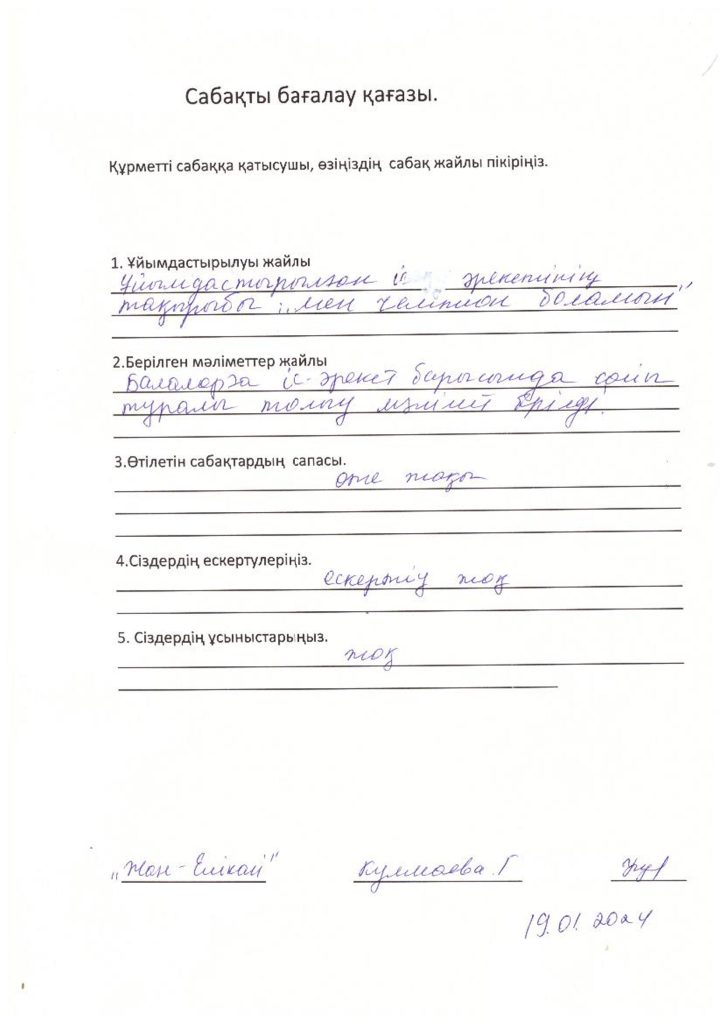 Сабақты бағалау қағазы.
Құрметті сабаққа қатысушы, өзіңіздің сабақ жайлы пікіріңіз.
1. Ұйымдастырылуы жайлы
Ұйымдастырылған іс әрекетінің
тақырыбы: „мен чемпион боламын"
2.Берілген мәліметтер жайлы
Балаларға іс-әрекет барысында
туралы толық мәлімет берілді.
3.Өтілетін сабақтардың сапасы.
өте жақсы
4.Сіздердің ескертулеріңіз.
ескертпіу жоқ
5. Сіздердің ұсыныстарыңыз.
жоқ
„Жан-Елікай" Кулмаева.Г
19.01.2024